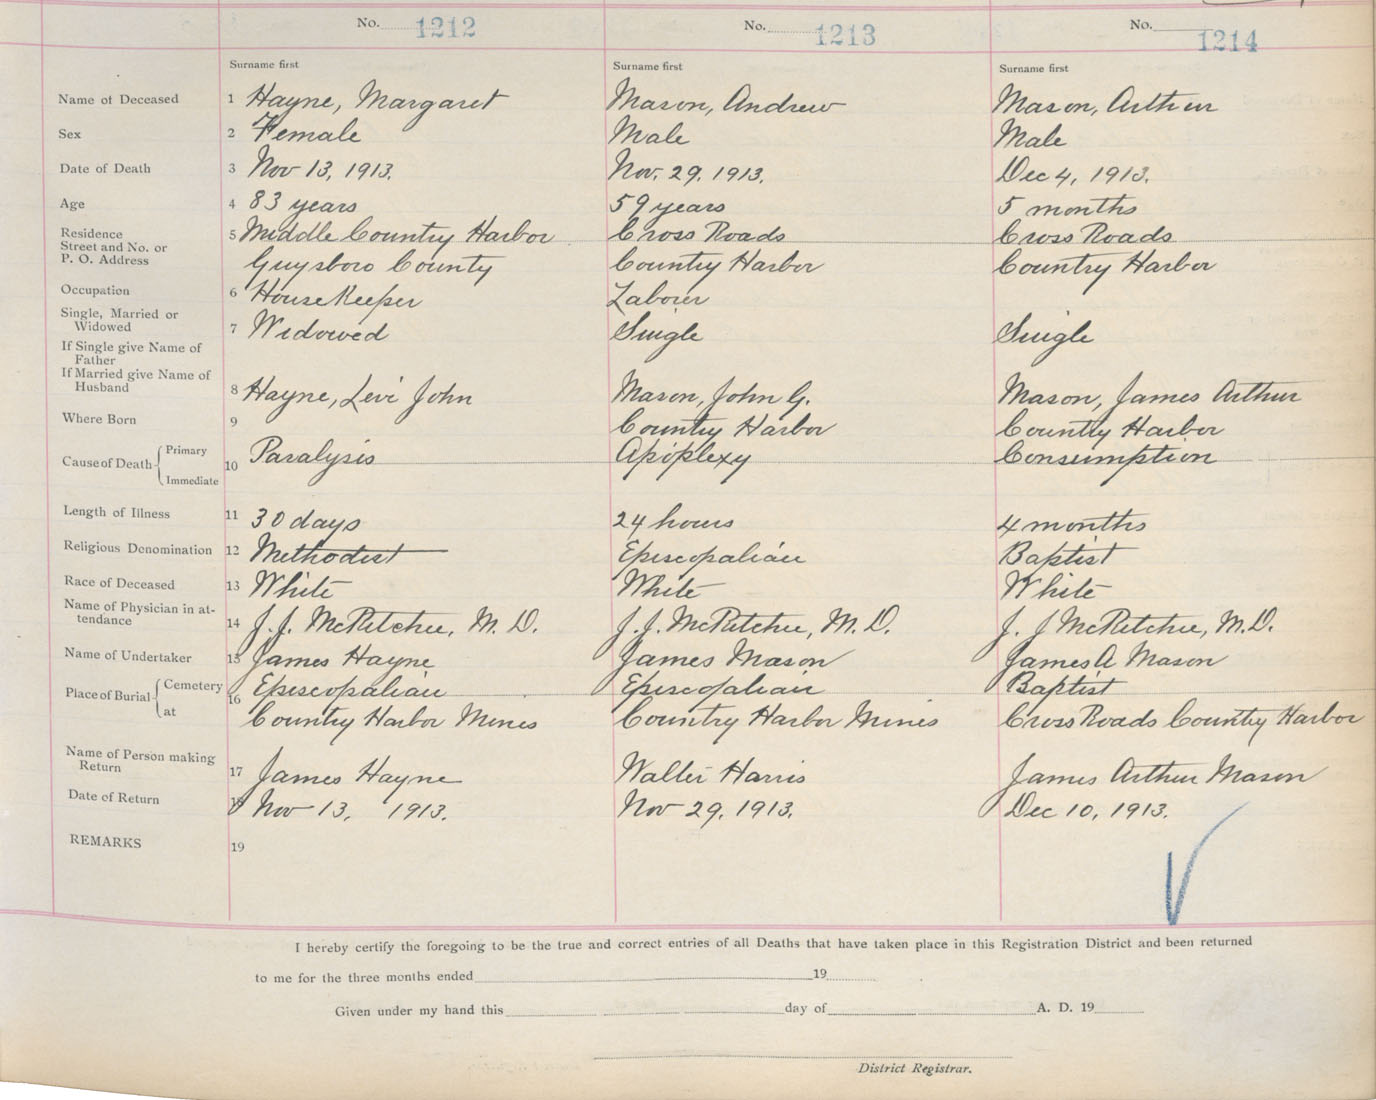 No. 1212 No. 1213 No. 1214
Surname first Surname first Surname first
Name of Deceased 1 Hayne, Margaret Mason, Andrew Mason, Arthur
Sex 2 Female Male Male
Date of Death 3 Nov 13, 1913. Nov. 29. 1913. Dec 4, 1913.
Age 4 83 years 59 years 5 months
Residence 5 Middle Country Harbor Cross Roads Cross Roads
Street and No. or
P. O. Address Guysboro County Country Harbor Country Harbor
Occupation 6 HouseKeeper Laborer
Single, Married or
Widowed 7 Widowed Single Single
If Single give Name of
Father
If Married give Name of
Husband 8 Hayne, Levi John Mason, John G. Mason, James Arthur
Where Born 9 Country Harbor Country Harbor
Cause of Death Primary 10 Paralysis Apoplexy Consumption
Immediate
Length of Illness 11 30 days 24 hours 4 months
Religious Denomination 12 Methodist Episcopalian Baptist
Race of Deceased 13 White White White
Name of Physician in at-
tendance 14 J. J. McRitchie, M. D. J. J. McRitchie, M. D. J. J McRitchie, M.D.
Name of Undertaker 15 James Hayne James Mason James A Mason
Place of Burial Cemetery 16 Episcopalian Episcopalian Baptist
at Country Harbor Mines Country Harbor Mines Cross Roads Country Harbor
Name of Person making
Return 17 James Hayne Walter Harris James Arthur Mason
Date of Return 18 Nov 13, 1913. Nov 29, 1913. Dec 10, 1913.
REMARKS 19
I hereby certify the foregoing to be the true and correct entries of all Deaths that have taken place in this Registration District and been returned
to me for the three months ended 19
Given under my hand this day of A. D. 19
District Registrar.